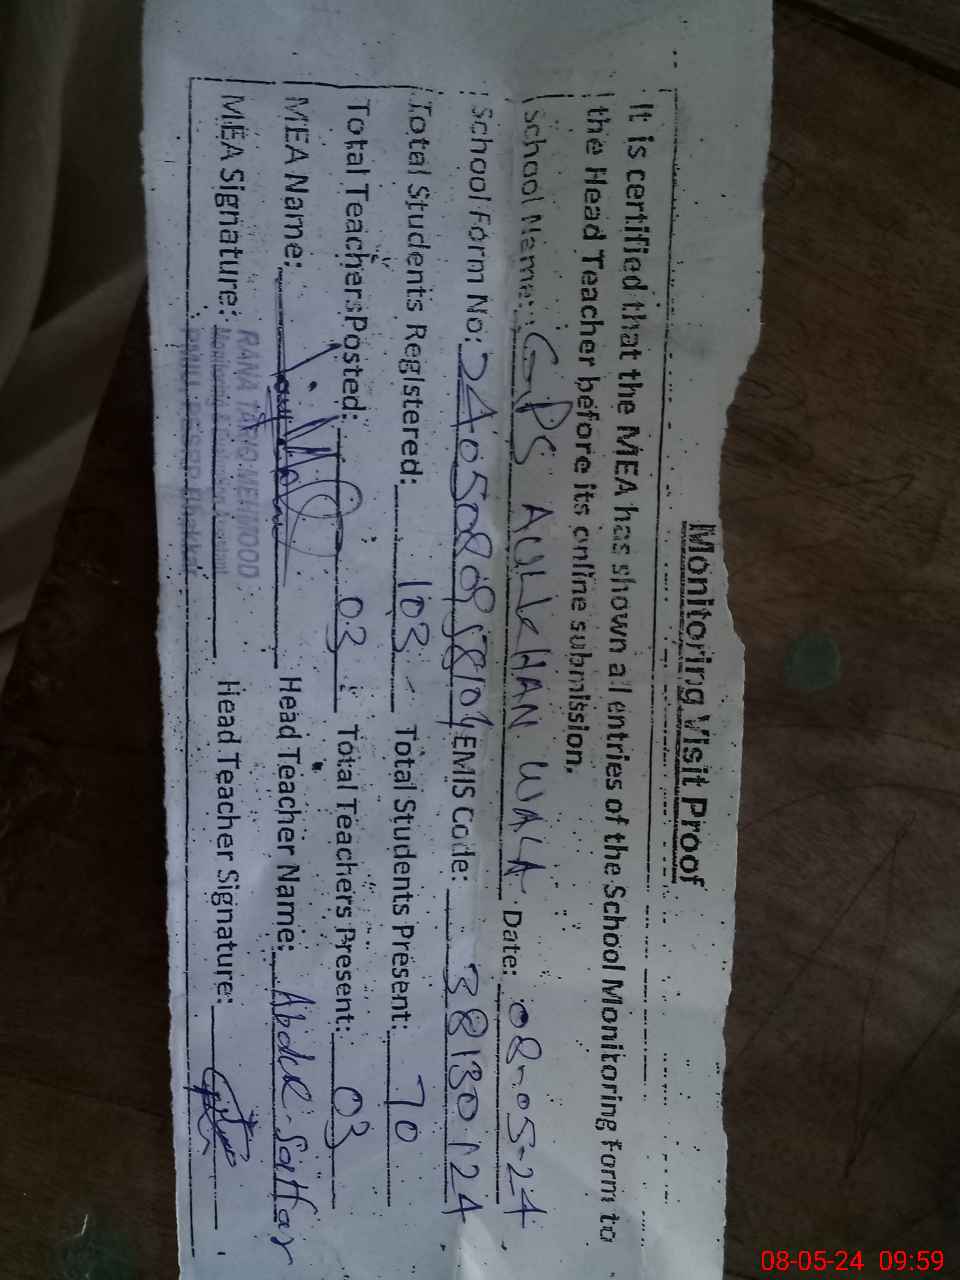 Monitoring Visit Proof
It is certified that the MEA has shown al entries of the School Monitoring Form to
the Head Teacher before its online submission.
School Name: GPS AULKHAN WALA Date: 08-05-24
School Form No: EMIS Code: 38130124
Total Students Registered: 103 Total Students Present: 70
Total Teachers Posted: 03 Total Teachers Present: 03
MEA Name: Head Teacher Name: Abdul Sattar
MEA Signature: Head Teacher Signature:
RANA TARIQ MEHMOOD
Monitoring & Evaluation Assistant
08-05-24 09:59